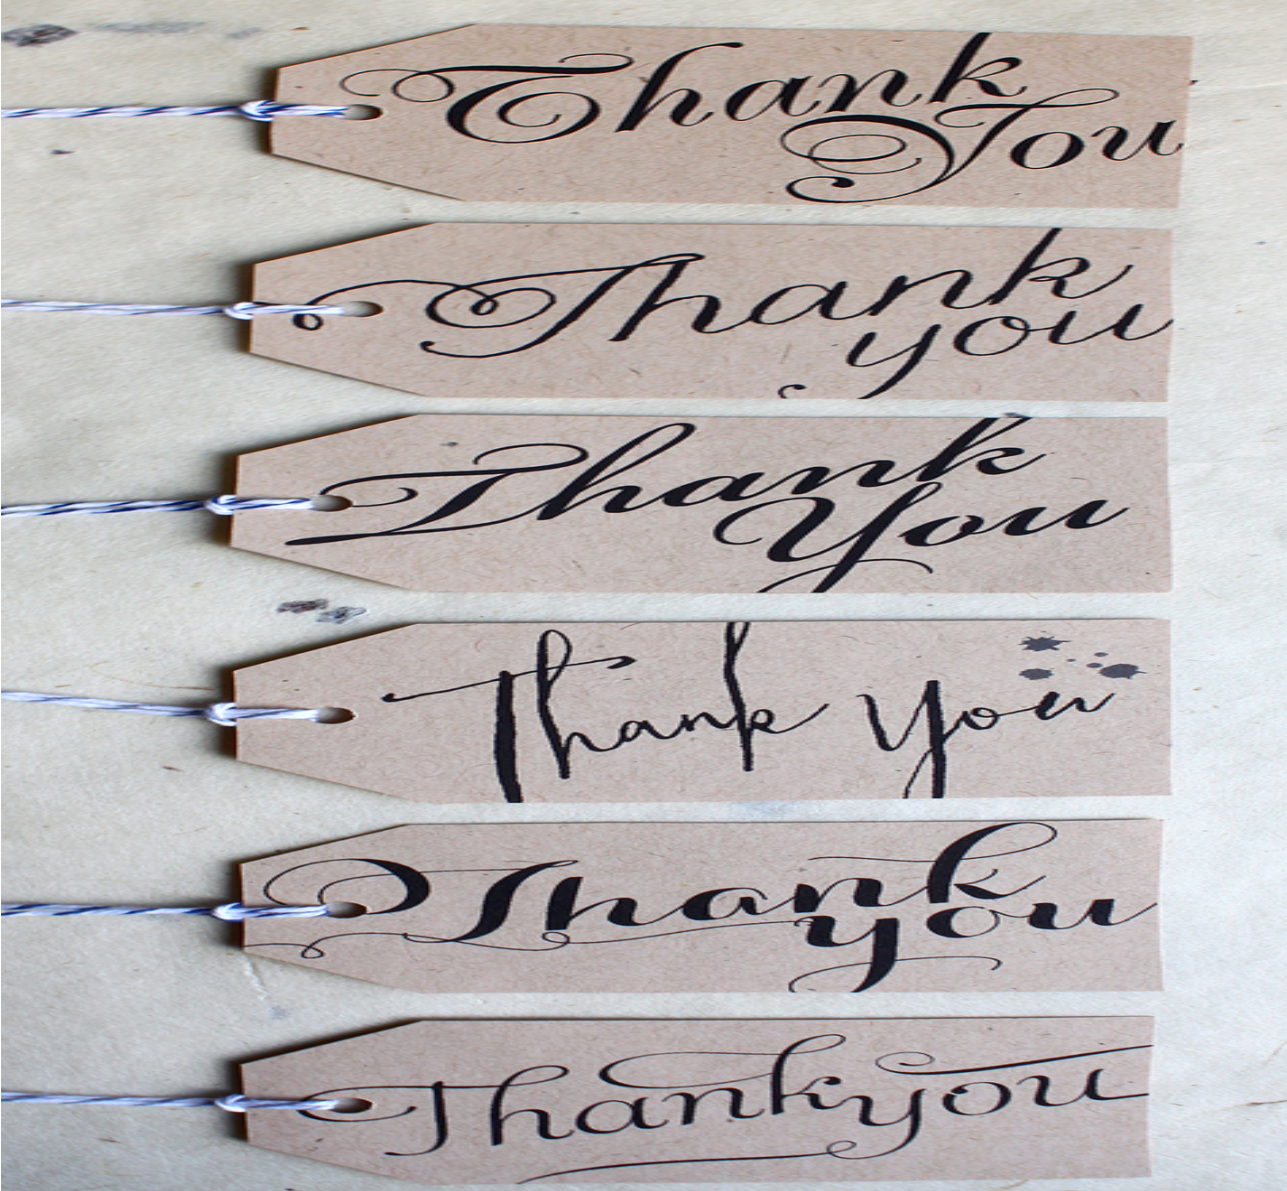 Thank
You
Thank
you
Thank
You
Thank You
Thank
you
Thankyou